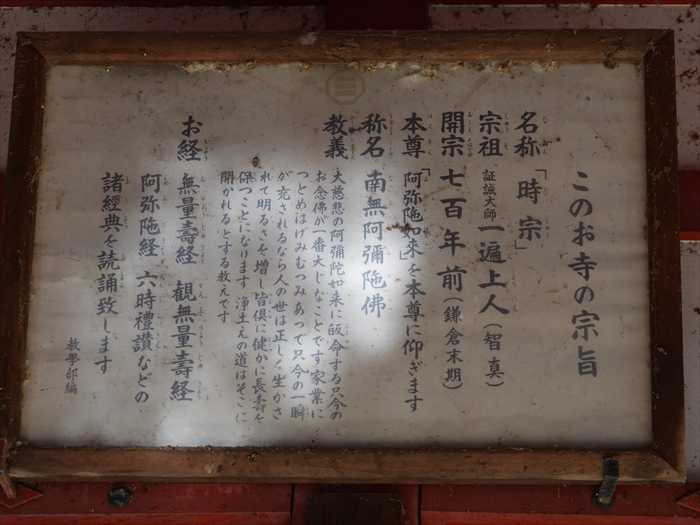 このお寺の宗旨
名称「時宗」
宗祖 証誠大師 一遍上人(智真)
開宗 七百年前(鎌倉末期)
本尊「阿弥陁如来」を本尊に仰ぎます
称名 南無阿彌陁佛
教義 大慈悲の阿彌陀如来に皈命する只今の
お念佛が一番大じなことです 家業に
つとめはげみむつみあって只今の一瞬
が充されるなら人の世は正しく生かさ
れて明るさを増し皆倶に健かに長寿を
保つことになります 浄土えの道はそこに
開かれるとする教えです
お経 無量壽経 観無量壽経
阿弥陁経 六時禮讃などの
諸經典を読誦致します
教學部編